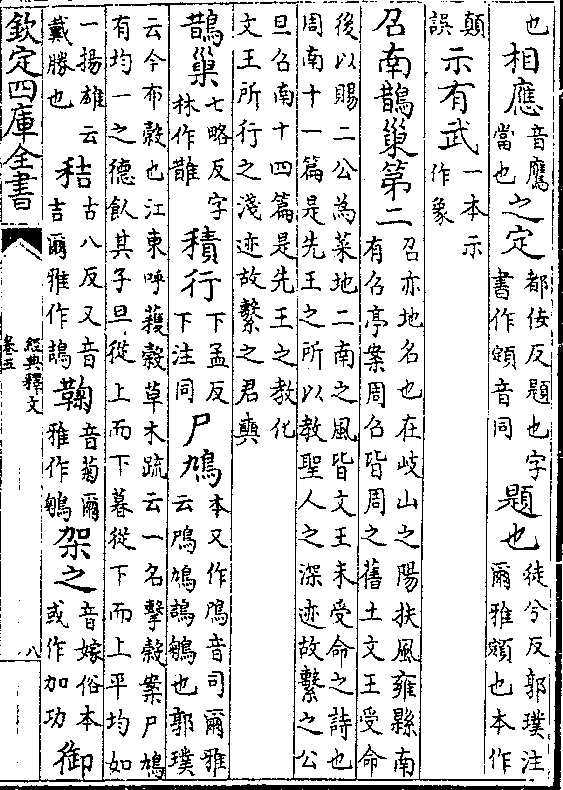 也相應音鷹當也之定都佞反題也字書作顁音同題也徒兮反郭璞注爾雅頟也本作
顛誤示有武一本示作象
召南鵲巢第二召亦地名也在岐山之陽扶風雍縣南有召亭案周召皆周之舊土文王受命
後以賜二公為菜地二南之風皆文王未受命之詩也周南十一篇是先王之所以教聖人之深迹故繫之公
旦召南十四篇是先王之教化文王所行之淺迹故繫之君奭
鵲巢七略反字林作䧿積行下孟反下注同尸鳩本又作鳲音司爾雅云鳲鳩鴶鵴也郭璞
云今布穀也江東呼穫穀草木疏云一名擊穀案尸鳩有均一之德飲其子旦從上而下暮從下而上平均如
一揚雄云戴勝也秸古八反又音吉爾雅作鴶鞠音菊爾雅作鵴架之音嫁俗本或作加功御
欽定四庫全書
經典釋文
卷五
八